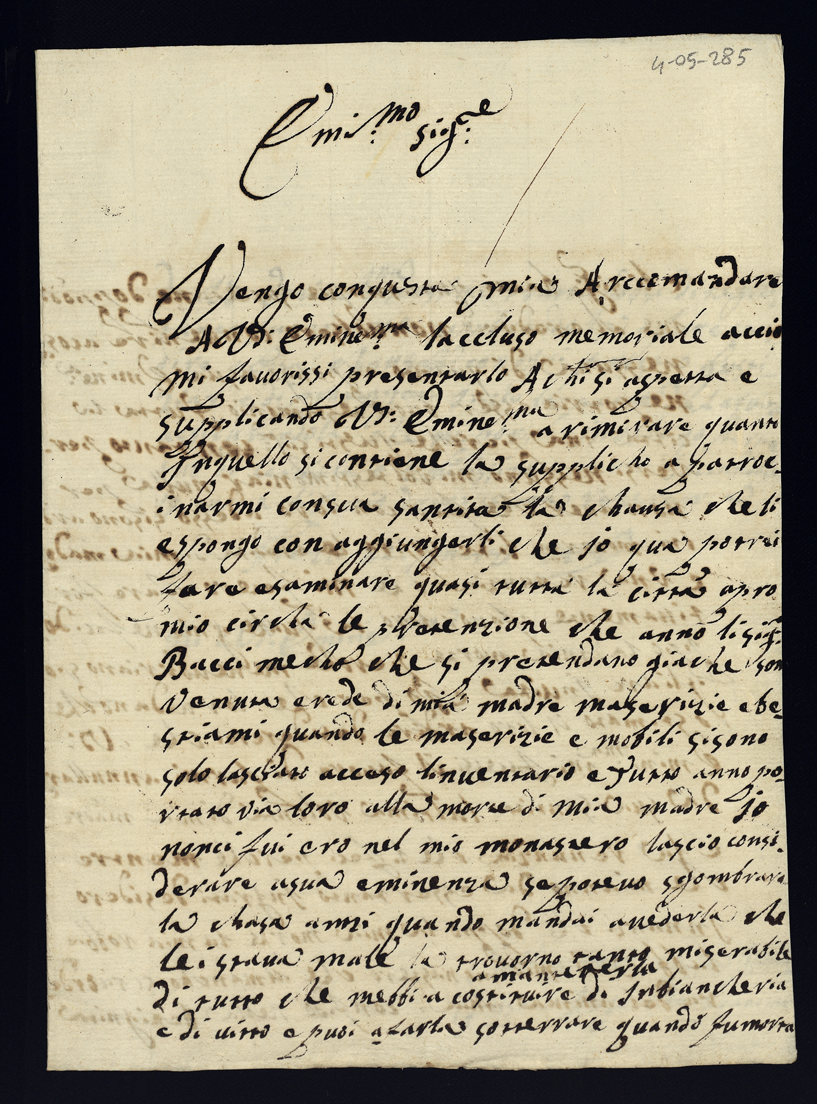 4-05-285
Emi.mo Sig.re
Vengo congusta mia Arccomandare
A V: Emine.ma laccluso memoriale accio
mi favorissi presentarlo A chi si aspetta e
supplicando V: Emine.ma a rimirare quanto
Inquello si contiene la supplicho a patroc-
inarmi consua santita la chausa che li
espongo con aggiungerli che jo qua potrei
fare esaminare quasi tutta la citta apro
mio circha le pretenzione che anno li sig.ri
Bacci mecho che si pretendano giache son
venuta erede di mia madre maserizie e be-
stiami quando le maserizie e mobili sisono
solo lasciato acceso linventario e Tutto anno po-
rtato via loro alla morte di mia madre jo
nonci fui ero nel mio monastero lascio consi-
derare asua eminenza se potevo sgombrare
la chasa anzi quando mandai avederla che
lei stava male la trovorno tanto miserabile
amantenerla
di tutto che mebbi a costituire di Inbiancheria
e di vitto e puoi a farla sotterrare quando fu morta